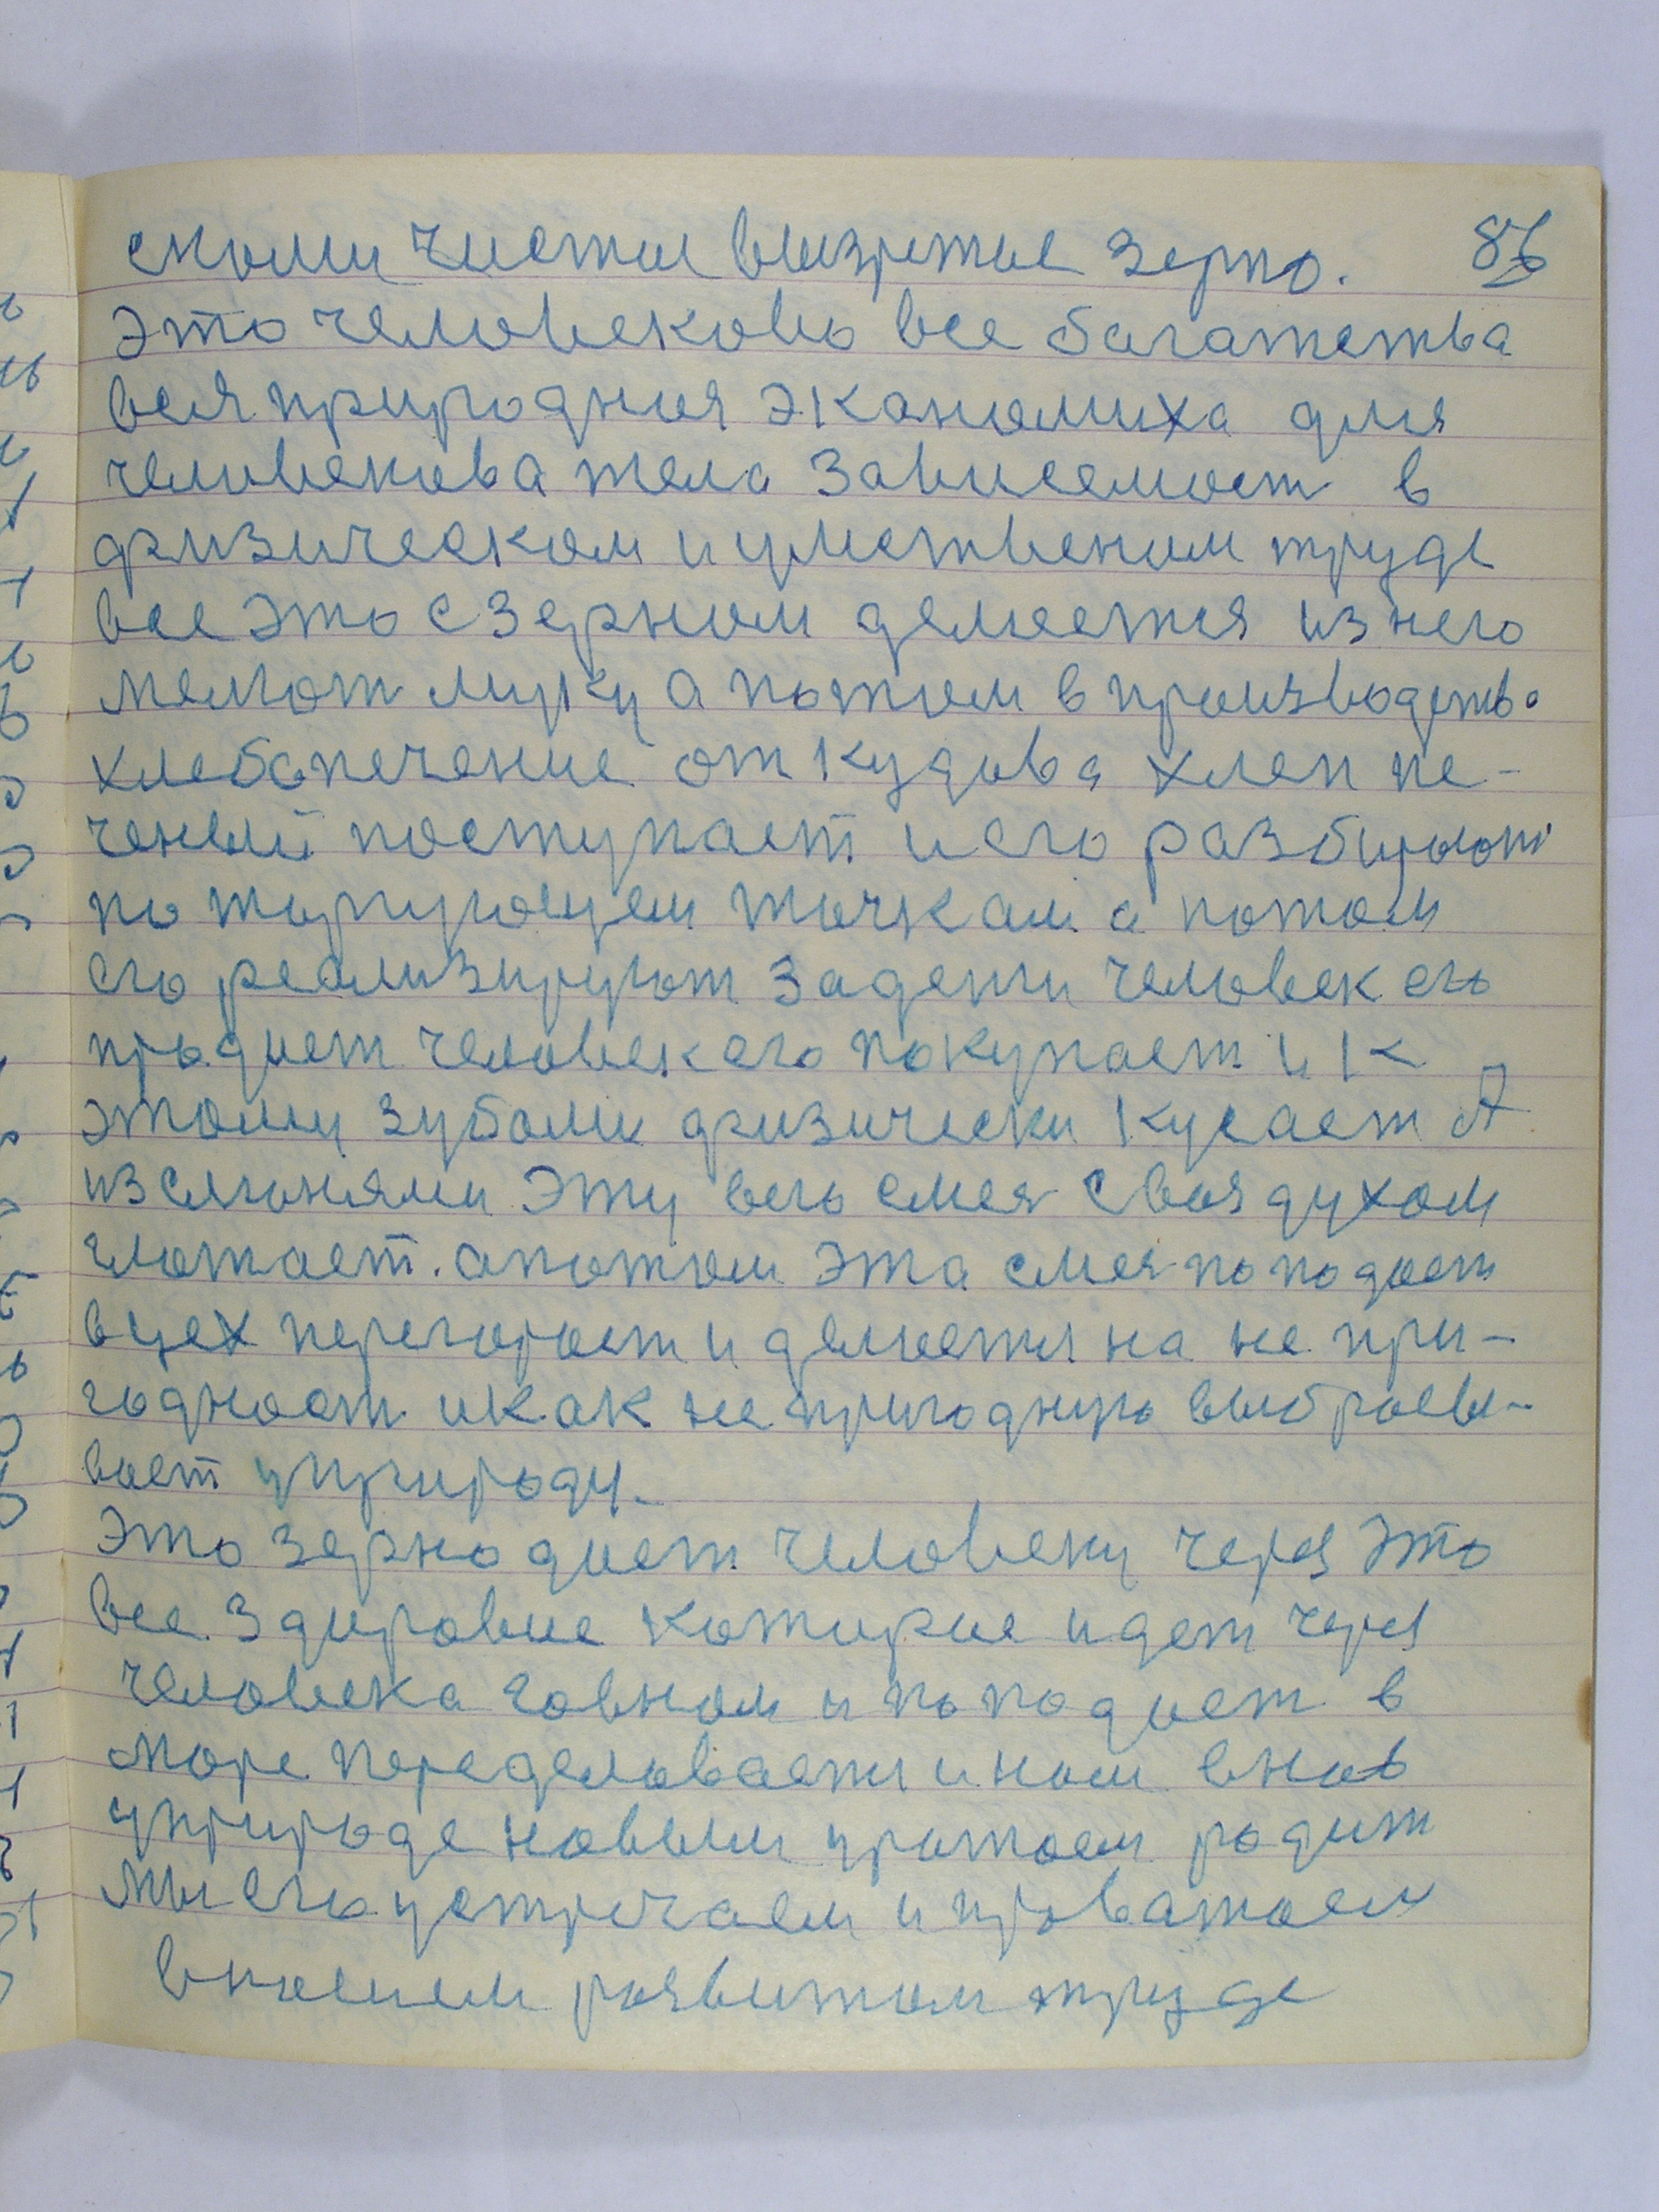 скоши чистые вызретые зерно. 86
Это человеково все багатства
вся природная экономиха для
человекова тела зависемост в
физическом и умственом труде
все это с зерном делается из него
мелют муку а потом в производство
хлебопечение от кудова хлеп пе-
ченый поступает и его разбирают
по торгующем точкам а потом
его реализируют за денги человек его
продает человек его покупает и к
этому зубами физически кусает А
из слюнями эту всю смея своя духом
глотает. а потом эта смея поподает
в цех перегорает и делается на не при-
годност и как не пригодную выбрасы-
вает у природу.
Это зерно дает человеку через это
все здоровие которые идет через
человека говном и пoпoдает в
море переделовается и нам внов
у природе новым уражаем родит
мы его устречаем и проважаем
в нашем развитом труде